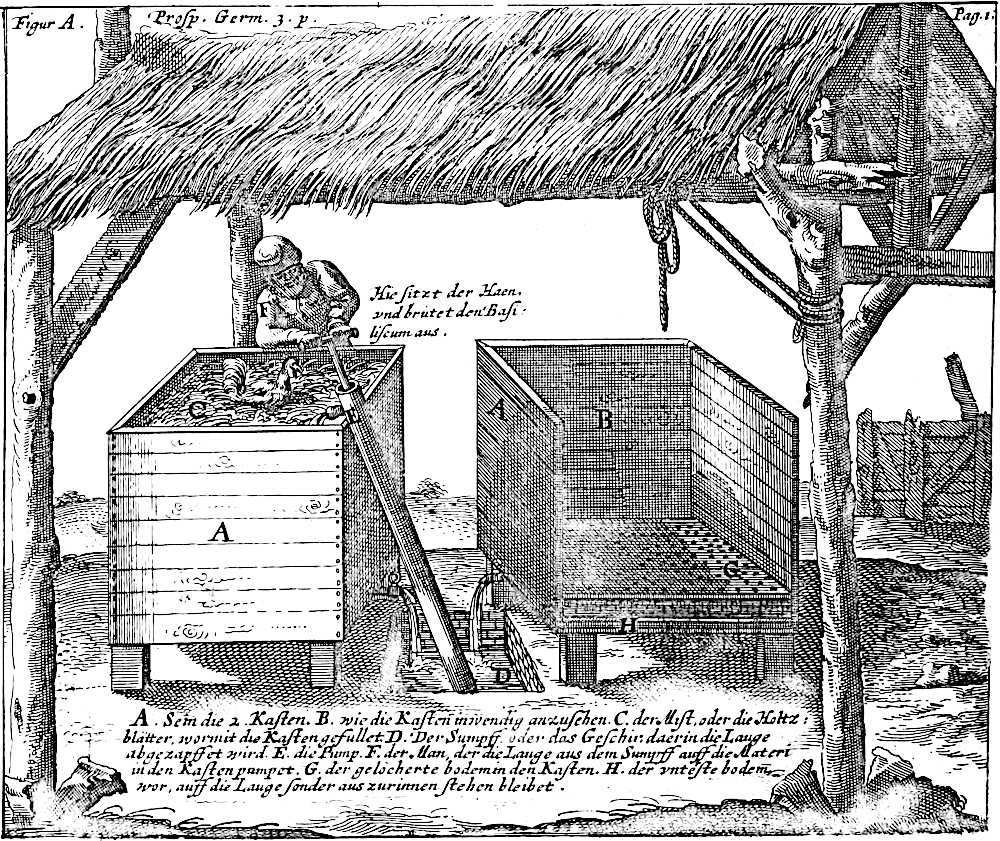 Figur A.
Prosp. Germ. 3. p.
Pag. 1.
F
Hie sitzt der Haen,
vnd brütet den Basi:
liscum aus.
C
E
A
B
A
G
H
D
A. Sein die 2. Kasten. B. wie die Kasten inwendig anzusehen. C. der Mist, oder die Holtz:
blätter, wormit die Kasten gefüllet. D. Der Sumpff, oder das Geschir, daerin die Lauge
abgezapffet wird. E. die Pump. F. der Man, der die Lauge aus dem Sumpff auff die Materi
in den Kasten pumpet. G. der gelöcherte bodem in den Kasten. H. der vnteste bodem,
wor, auff die Lauge sonder aus zurinnen stehen bleibet.